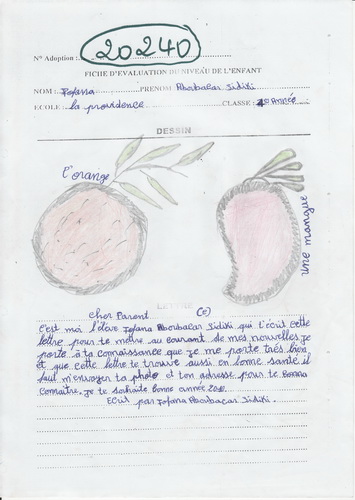 N° Adoption : 20240
FICHE D'EVALUATION DU NIVEAU DE L'ENFANT
NOM : Fofana PRENOM Aboubacar Sidiki
ECOLE : la providence CLASSE : 1e Année
DESSIN
l'orange
une mangue
LETTRE
Cher Parent (e)
C'est moi l'élève Fofana Aboubacar Sidiki qui t'écrit cette
lettre pour te mettre au courant de mes nouvelles je
porte à ta connaissance que je me porte très bien
et que cette lettre te trouve aussi en bonne santé il
faut m'envoyer ta photo et ton adresse pour te
connaître. je te souhaite bonne année
Ecrit par Fofana Aboubacar Sidiki.